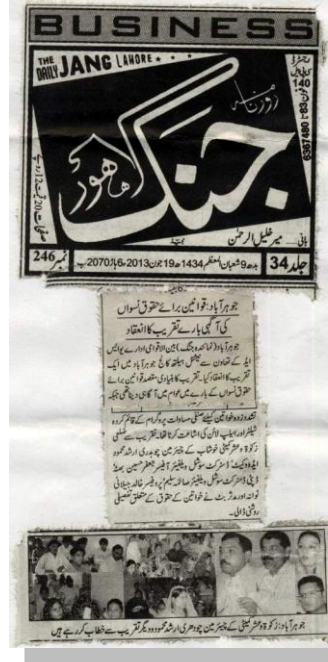 BUSINESS
THE DAILY JANG LAHORE
روزنامہ
جنگ
لاہور
بانی ... میر خلیل الرحمٰن
جلد 34
بدھ 9 شعبان المعظم 1434ھ 19 جون 2013ء 6 ہاڑ 2070ب
نمبر 246
جوہرآباد: قوانین برائے حقوق نسواں
کی آگہی بارے تقریب کا انعقاد
جوہرآباد (نمائندہ جنگ) بین الاقوامی ادارے یو ایس
ایڈ کے تعاون سے نیشنل ہیلتھ کالج جوہرآباد میں ایک
تقریب کا انعقاد کیا۔ تقریب کا بنیادی مقصد قوانین برائے
حقوق نسواں کے بارے میں عوام میں آگاہی دینا تھی جبکہ
تشدد زدہ خواتین کیلئے صنفی مساوات پروگرام کے قائم کردہ
شیلٹر اور ہیلپ لائن کی اشاعت کرنا تھا۔ تقریب سے ضلعی
زکوٰۃ و عشر کمیٹی خوشاب کے چیئرمین چوہدری ارشد محمود
ایڈووکیٹ، ڈسٹرکٹ سوشل ویلفیئر آفیسر جعفر حسین بھٹہ
ڈپٹی ڈسٹرکٹ سوشل ویلفیئر صائمہ سلیم، پروفیسر خالد جیلانی
ٹوانہ اور مدثر بٹ نے خواتین کے حقوق کے متعلق تفصیلی
روشنی ڈالی۔
جوہرآباد: زکوٰۃ و عشر کمیٹی کے چیئرمین چودھری ارشد محمود و دیگر تقریب سے خطاب کر رہے ہیں